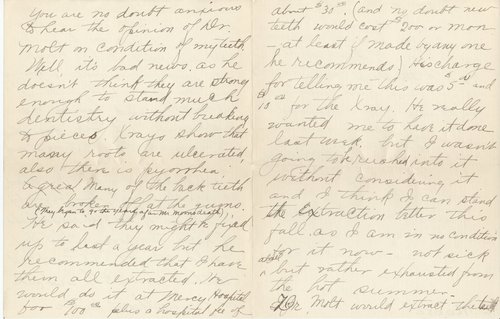 You are no doubt anxious
to hear the opinion of Dr.
Molt on condition of my teeth.
Well, it's bad news, as he
doesn't think they are strong
enough to stand much
dentistry without breaking
to pieces. Xrays show that
many roots are ulcerated,
also there is pyorrhea.
A great many of the back teeth
are broken off at the gums.
(They began to go the year after Mama's death)
He said they might be fixed
up to last a year but he
recommended that I have
them all extracted. He
would do it at Mercy Hospital
for $100 00 plus a hospital fee of
about $35 00. (and no doubt new
teeth would cost $200 or more
- at least if made by anyone
he recommends) His charge
for telling me this was $5 00 and
$10 00 for the Xray. He really
wanted me to have it done
last week, but I wasn't
going to be rushed into it
without considering it
and I think I can stand
the extraction later this
fall as I am in no condition
for it now - not sick
but rather exhausted from
the hot summer.
Dr Molt would extract the teeth